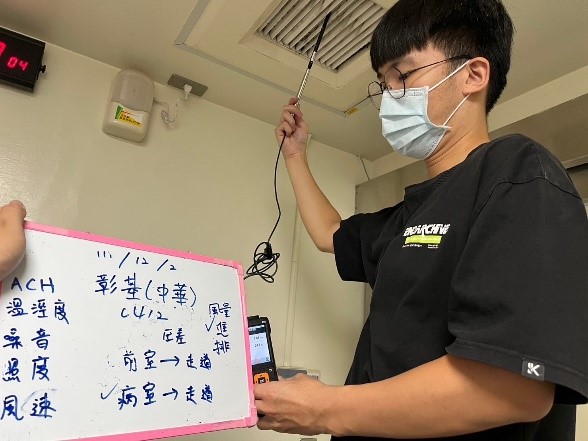 04
111/12/2
ACH
彰基(中華)
溫溼度
C412
風量
✓進
排
噪音
壓差
照度
前室→走道
風速
✓病室→走道
K